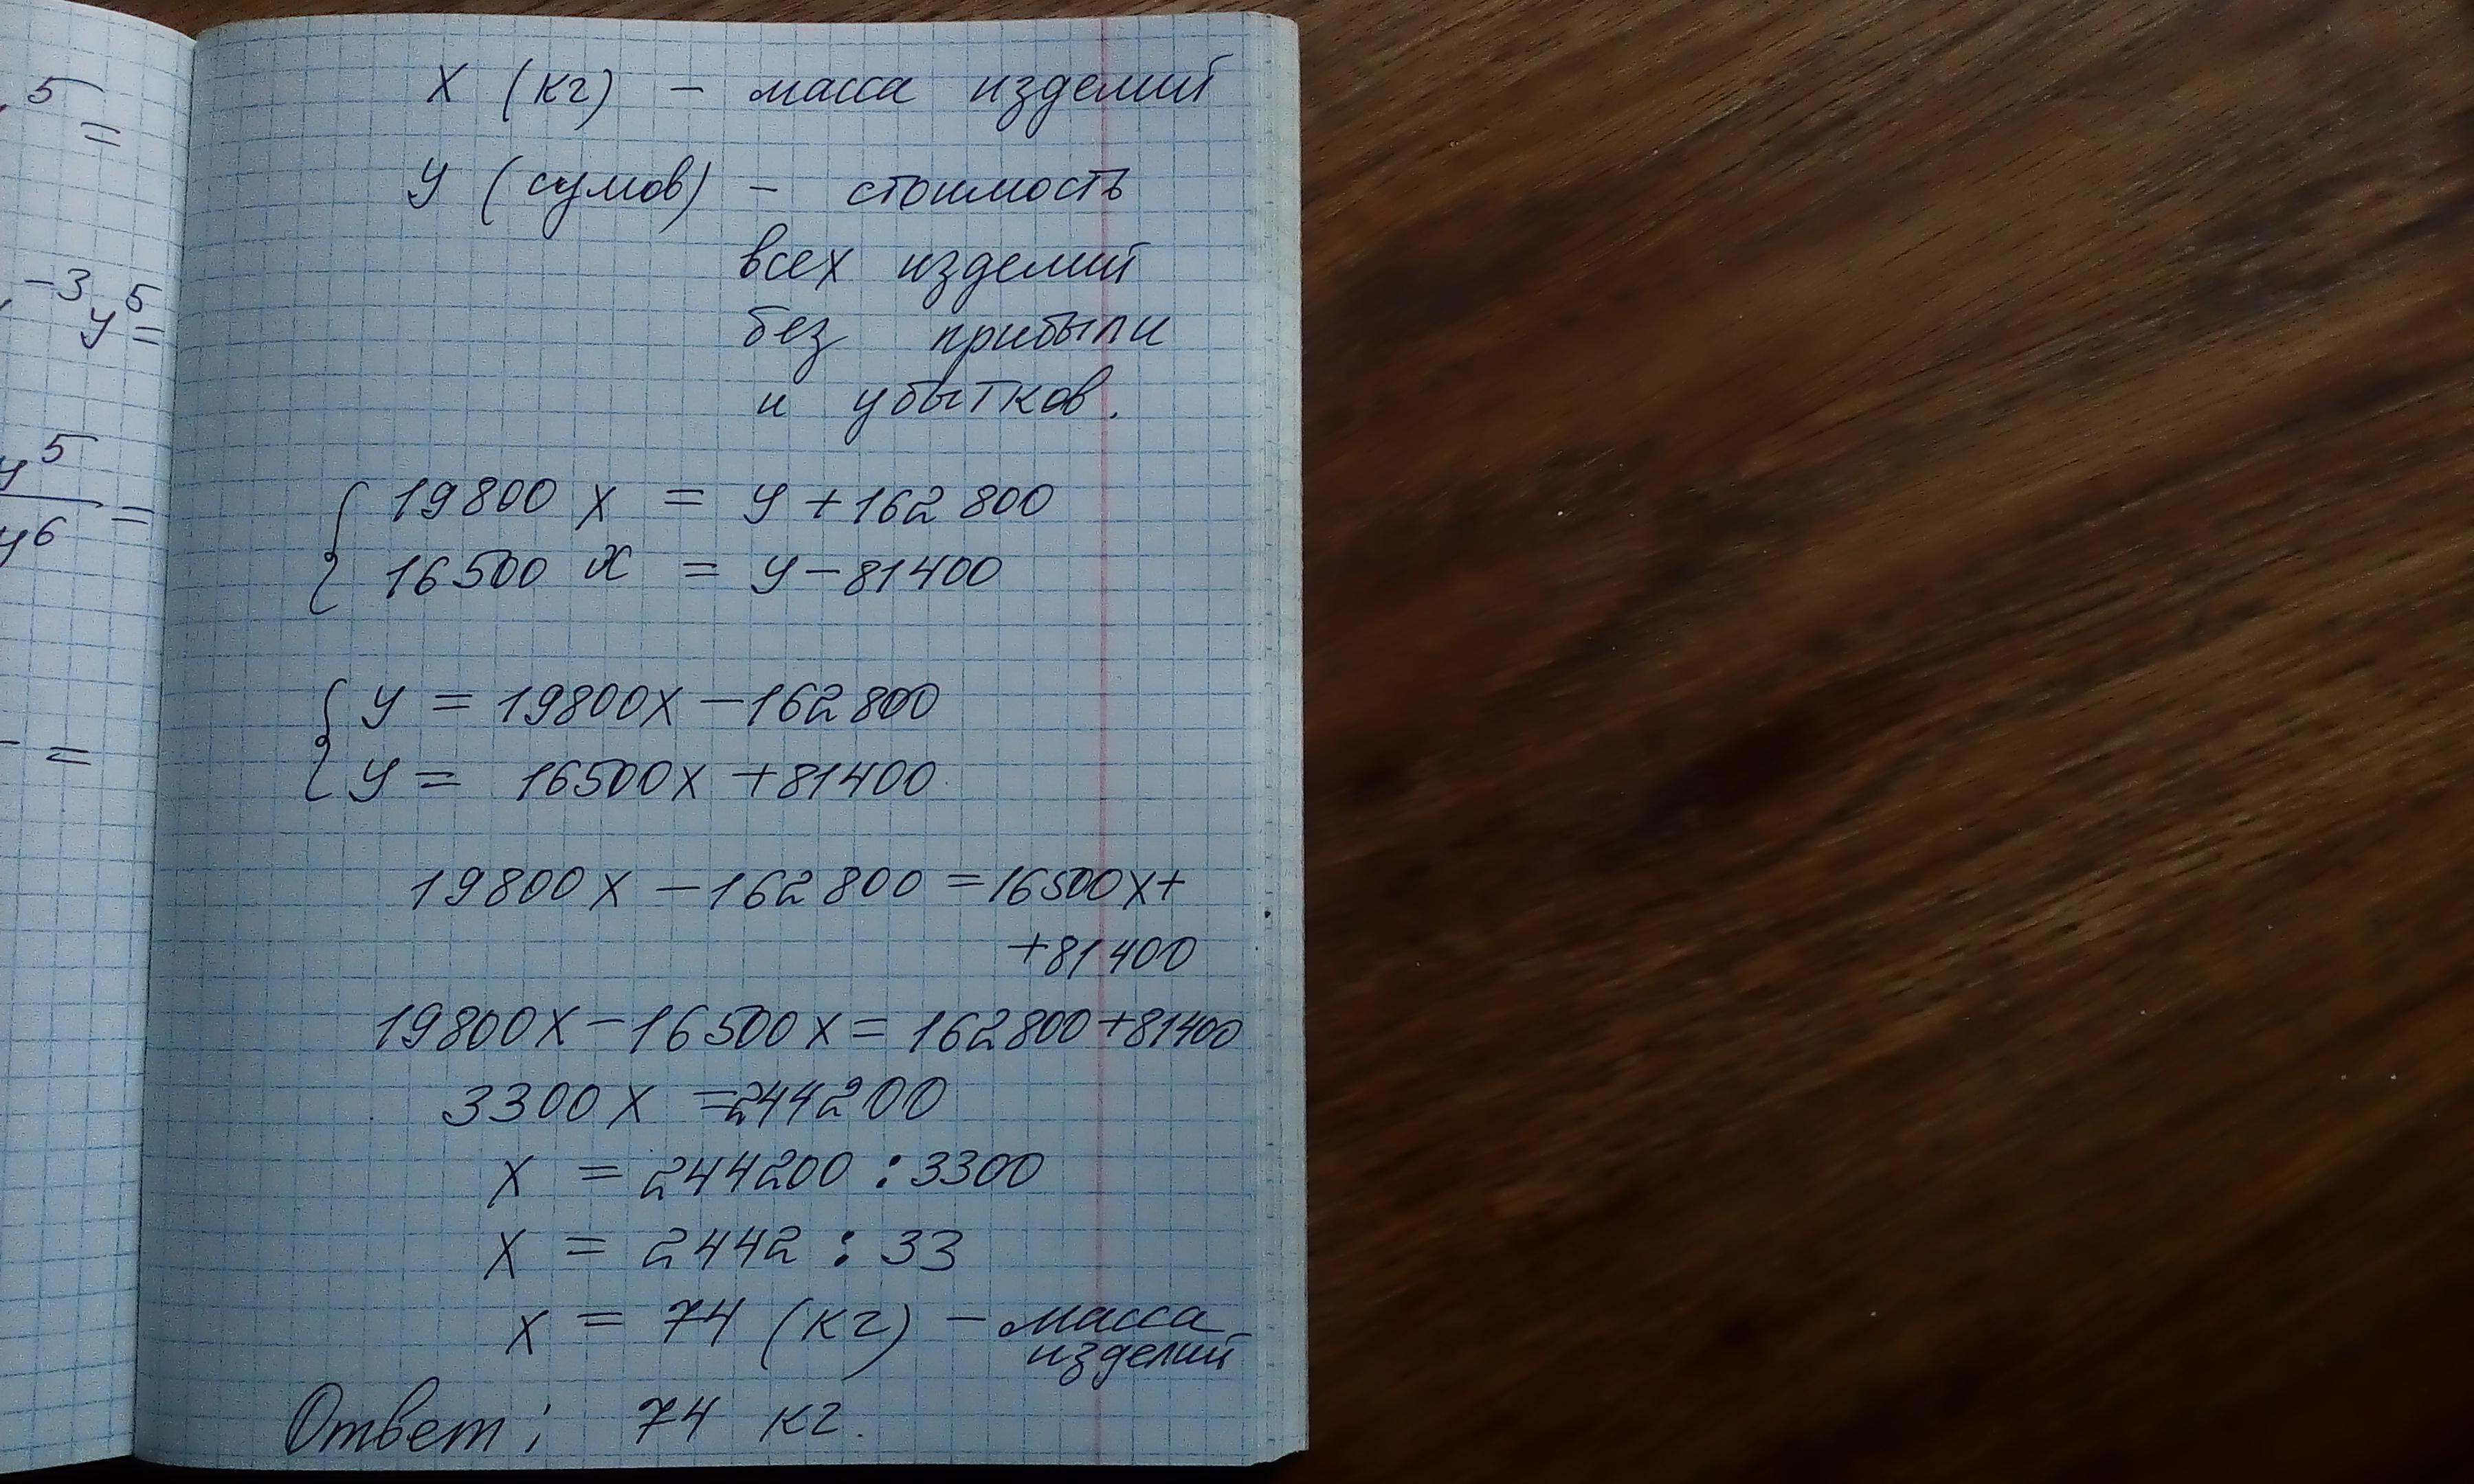 5
=
-3 y5 =
y5
=
y6
=
X (кг) - масса изделий
У (сумов) - стоимость
всех изделий
без прибыли
и убытков.
19800 x = y + 162 800
16500 x = y - 81400
y = 19800x - 162 800
y = 16500x + 81400
19800x - 162 800 = 16500x +
+ 81400
19800x - 16500x = 162 800 + 81400
3300x = 244200
x = 244200 : 3300
x = 2442 : 33
x = 74 (кг) - масса
изделий
Ответ: 74 кг.